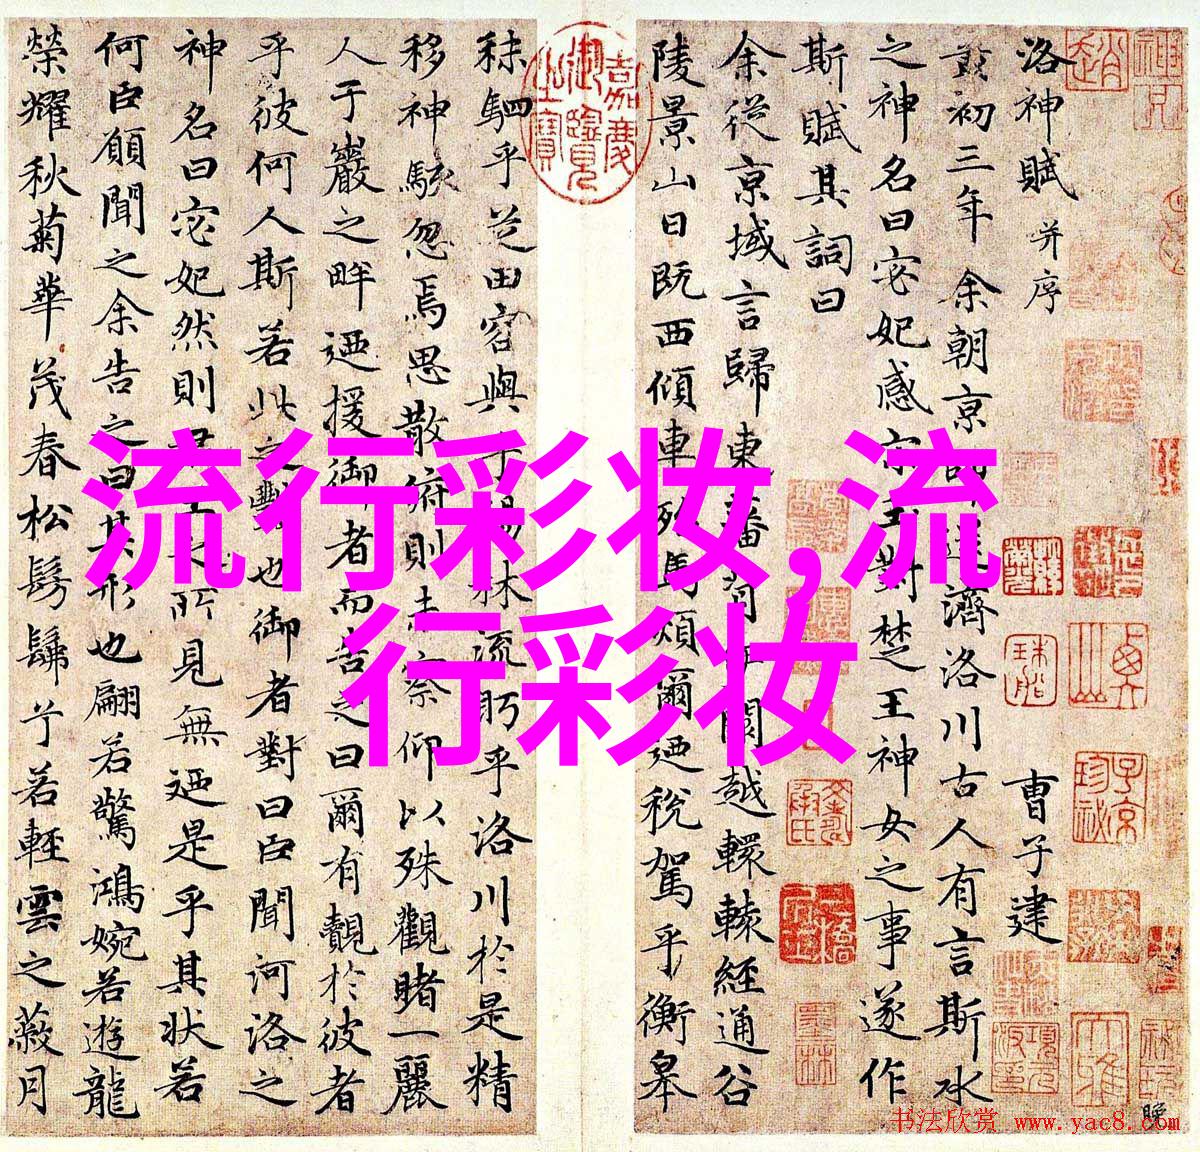 洛神賦 并序 曹子建
黃初三年余朝京師還濟洛川古人有言斯水
之神名曰宓妃感宋玉對楚王神女之事遂作
斯賦其詞曰
余從京域言歸東藩背伊闕越轘轅經通谷
陵景山日既西傾車殆馬煩爾迺稅駕乎衡皋
嘉慶御覽之寶
秣駟乎芝田容與乎楊林流眄乎洛川於是精
移神駭忽焉思散俯則未察仰以殊觀睹一麗
人于巖之畔迺援御者而告之曰爾有覿於彼者
乎彼何人斯若此之豔也御者對曰臣聞河洛之
神名曰宓妃然則君王之所見無迺是乎其狀若
何臣願聞之余告之曰其形也翩若驚鴻婉若遊龍
榮耀秋菊華茂春松髣髴兮若輕雲之蔽月
流行彩妆,流
行彩妆
书法欣赏 www.yac8.com